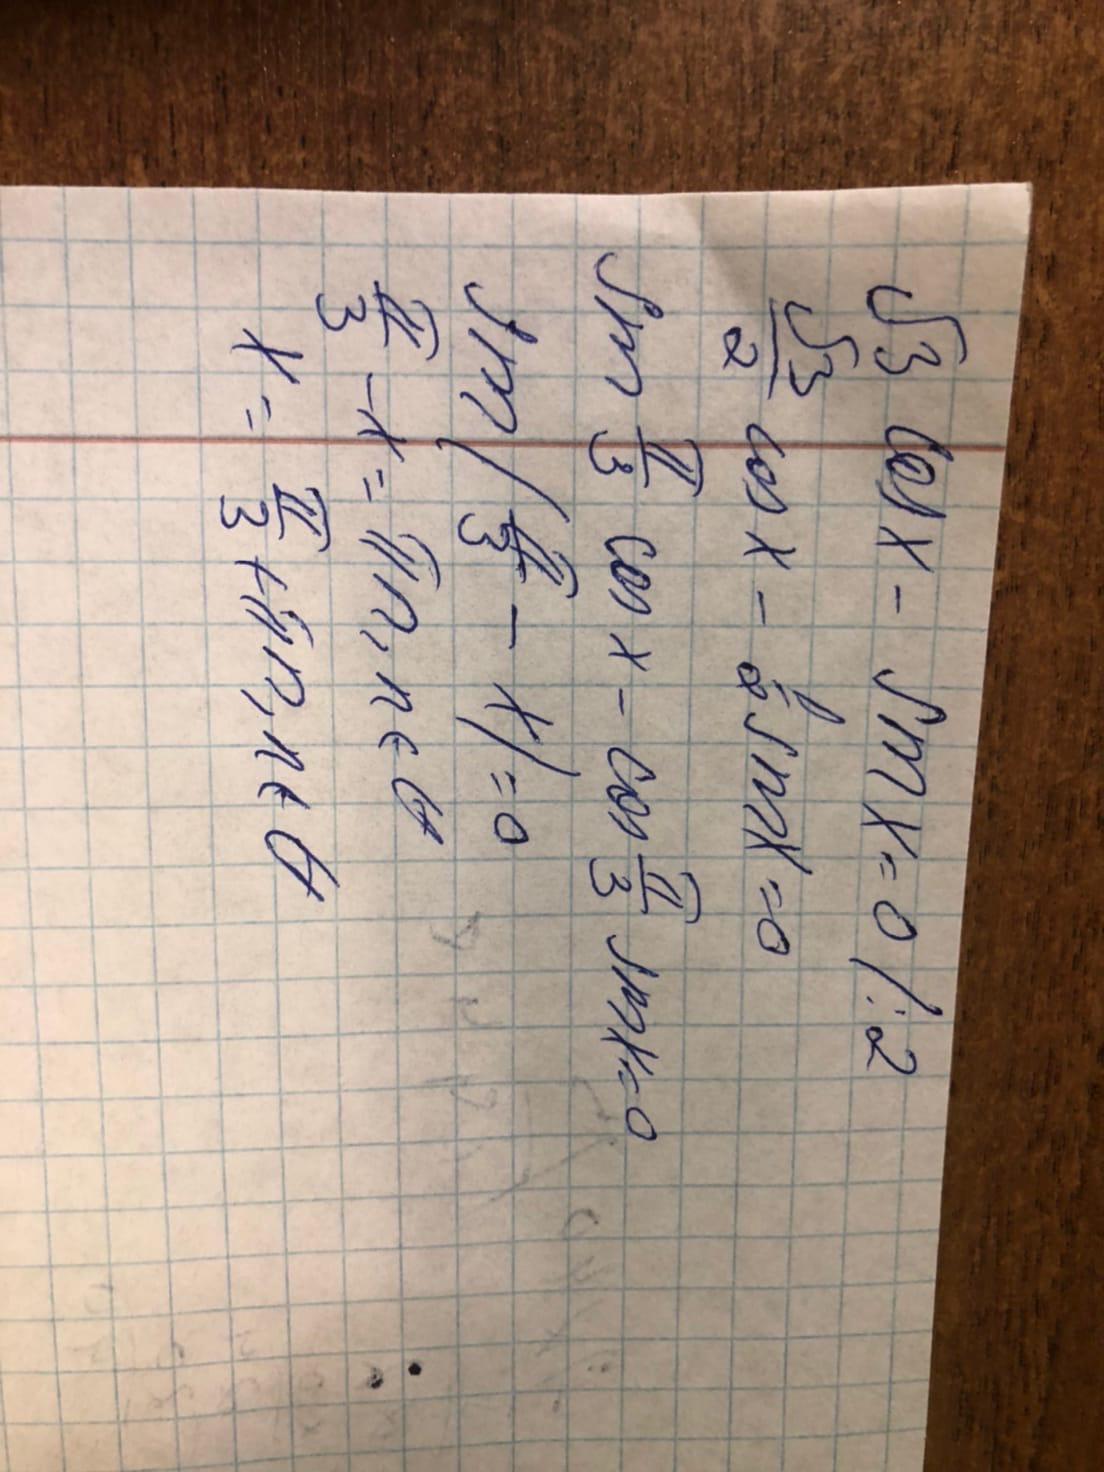 √3 cos x - sin x = 0 /:2
√3/2 cos x - 1/2 sin x = 0
sin π/3 cos x - cos π/3 sin x = 0
sin(π/3 - x) = 0
π/3 - x = πn, n ∈ Z
x = π/3 + πn, n ∈ Z